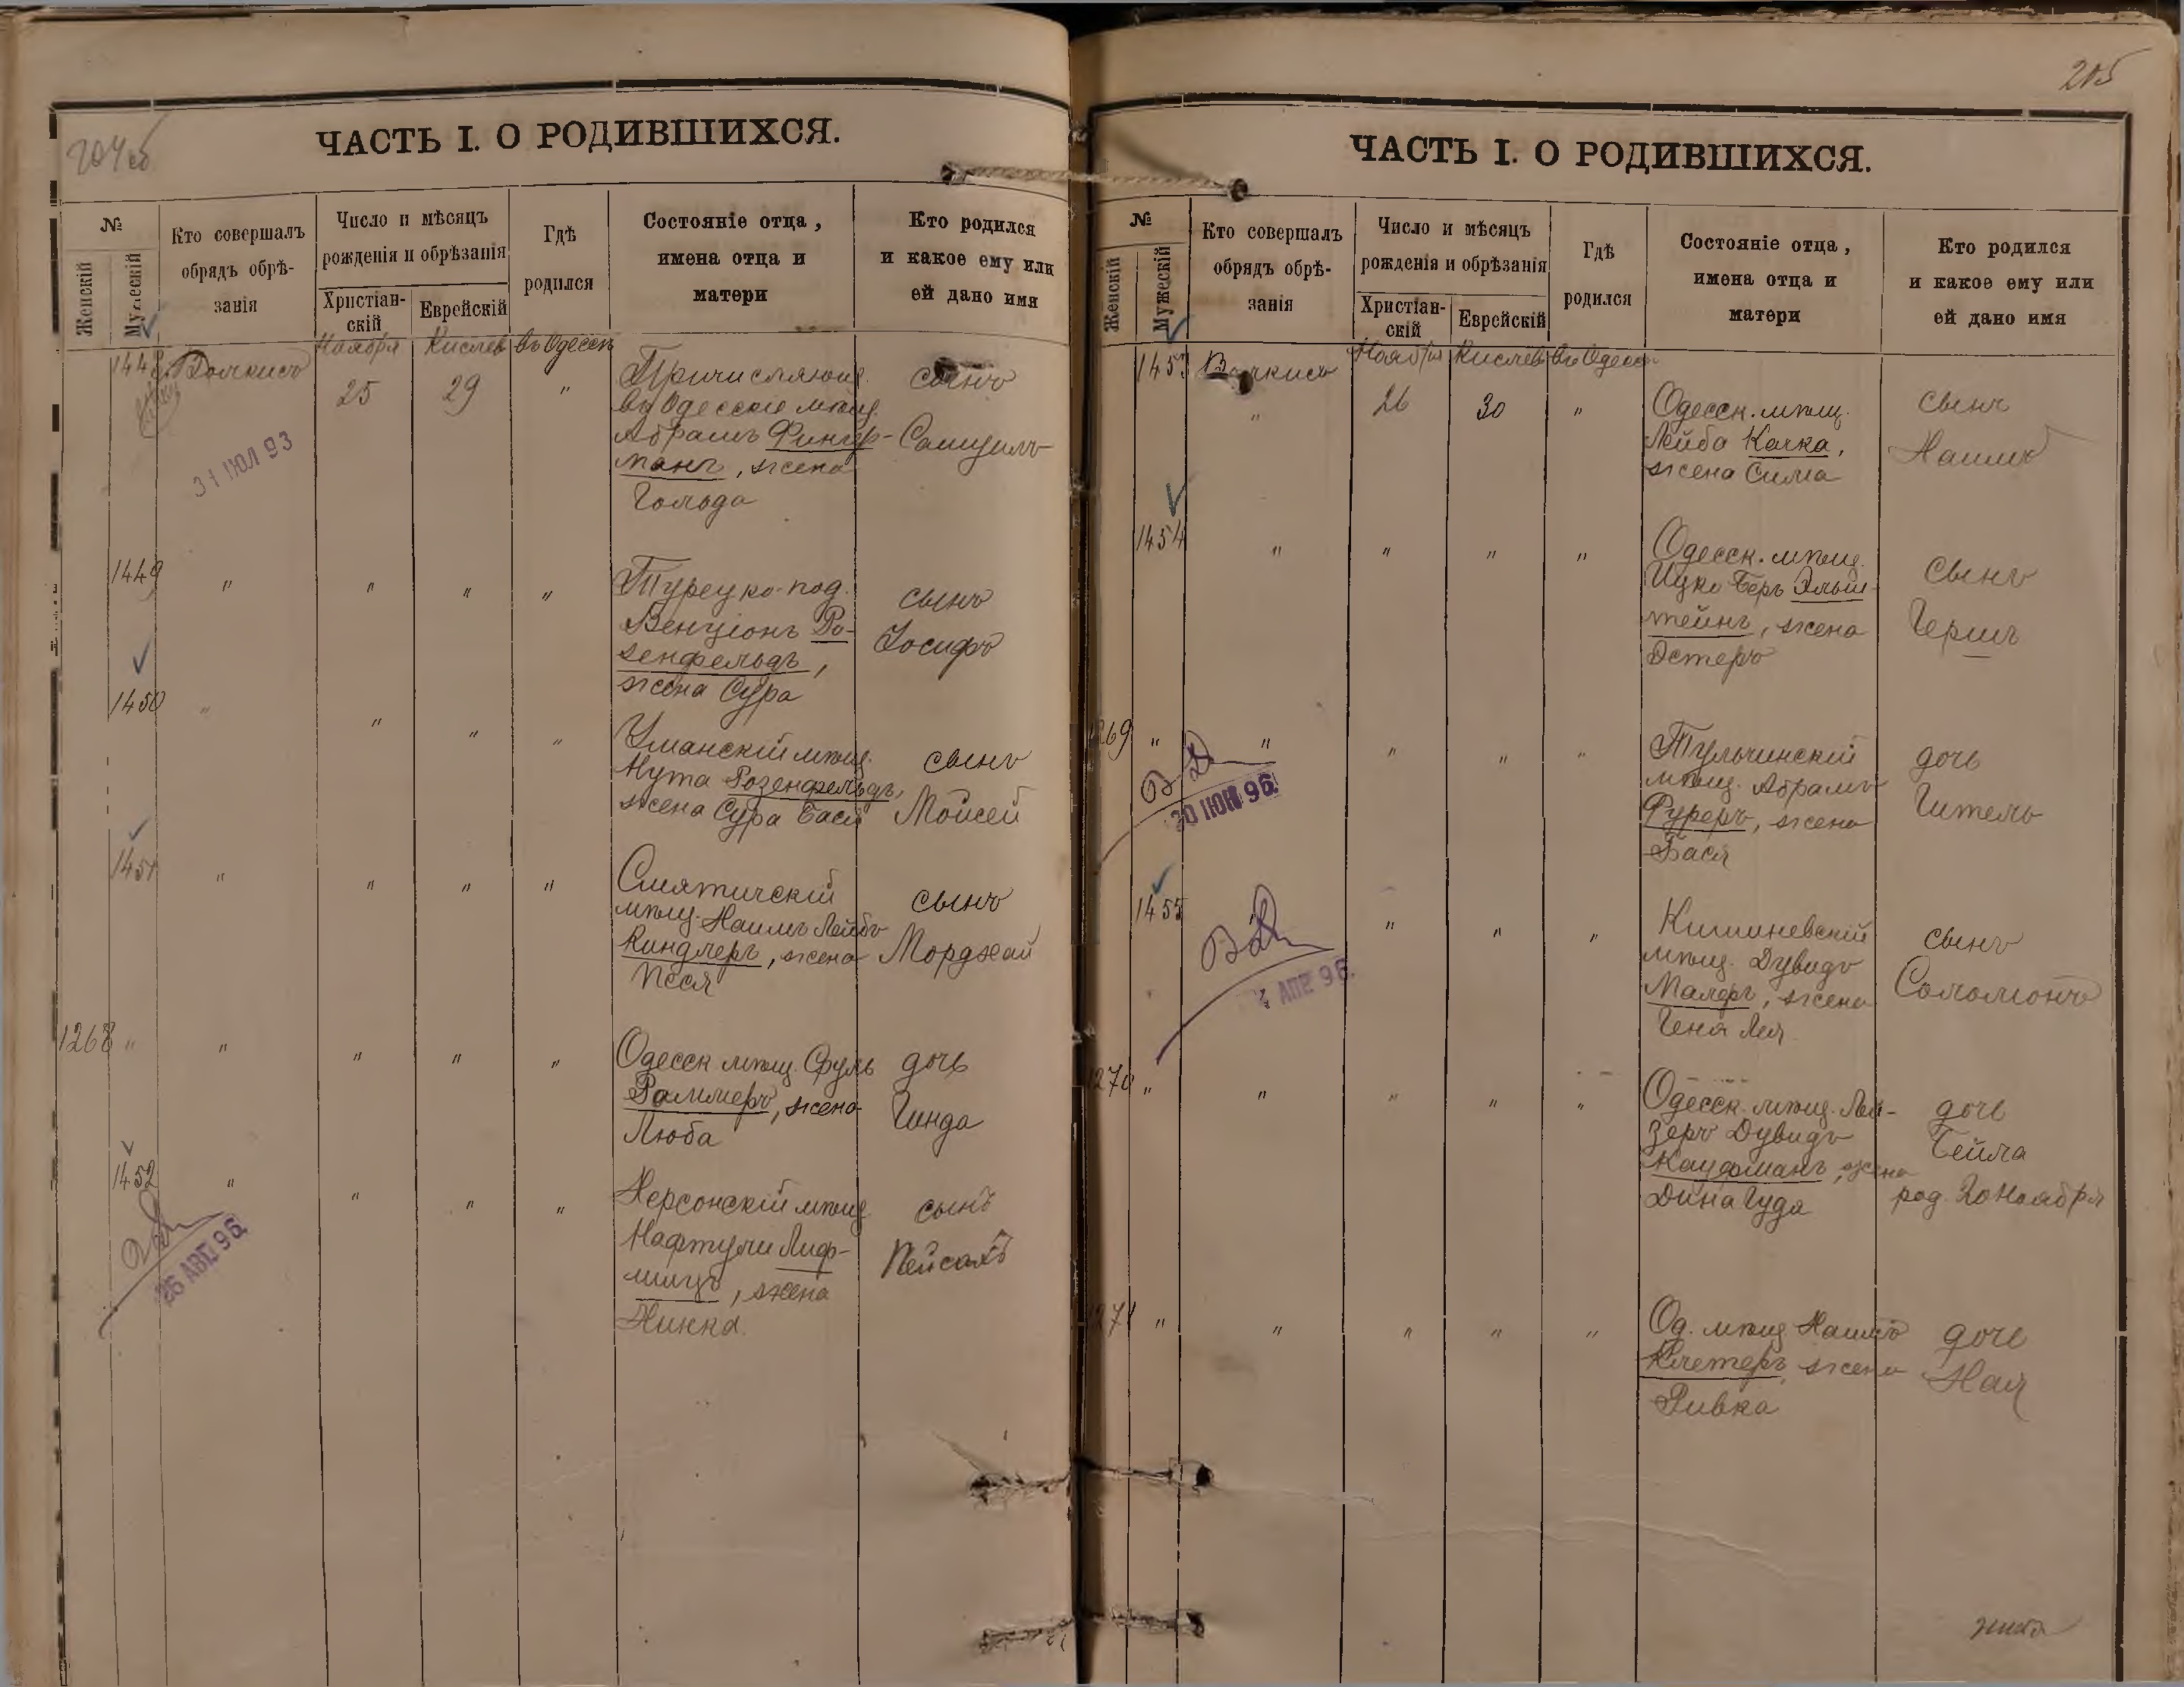 204об
ЧАСТЬ I. О РОДИВШИХСЯ.
№
Женскій
Мужескій
Кто совершалъ
обрядъ обрѣ-
занія
Число и мѣсяцъ
рожденія и обрѣзанія
Христіан-
скій
Еврейскій
Гдѣ
родился
Состояніе отца,
имена отца и
матери
Кто родился
и какое ему или
ей дано имя
Ноября Кислев въ Одессѣ
1448 25 29 "
31 ІЮЛ 93
въ Одесскіе мѣщ.
Абрамъ Фингер-
манъ, жена
Гольда
сынъ
Самуилъ
1449 " " " "
Турецко-под.
Бенціонъ Ро-
зенфельдъ,
жена Сура
сынъ
Іосифъ
1450 " " " "
Уманскій мѣщ.
Нута Розенфельдъ,
жена Сура Бася
сынъ
Моисей
1451 " " " "
мѣщ. Хаимъ Лейбъ
Киндлеръ, жена
Песя
сынъ
Мордхай
1268 " " " " "
Одесск. мѣщ. Сруль
Раммеръ, жена
Люба
дочь
Гинда
1452 " " " "
26 АВГ 96
Херсонскій мѣщ.
Нафтули Лиф-
шицъ, жена
сынъ
Пейсахъ
205
ЧАСТЬ I. О РОДИВШИХСЯ.
№
Женскій
Мужескій
Кто совершалъ
обрядъ обрѣ-
занія
Число и мѣсяцъ
рожденія и обрѣзанія
Христіан-
скій
Еврейскій
Гдѣ
родился
Состояніе отца,
имена отца и
матери
Кто родился
и какое ему или
ей дано имя
Ноября Кислев въ Одессѣ
1453 " 26 30 "
Одесск. мѣщ.
Лейба Качка,
жена Сима
сынъ
Хаимъ
1454 " " " "
Одесск. мѣщ.
Ицко Беръ Эльш-
тейнъ, жена
Эстеръ
сынъ
Гершъ
1269 " " " " "
30 ІЮН 96
Тульчинскій
мѣщ. Абрамъ
Фуреръ, жена
Бася
дочь
Гитель
1455 " " " "
АПР 96
Кишиневскій
мѣщ. Дувидъ
Малеръ, жена
Геня Лея
сынъ
Соломонъ
1270 " " " " "
Одесск. мѣщ. Лей-
зеръ Дувидъ
Кауфманъ, жена
Дина Гуда
дочь
Бейла
род. 20 Ноября
1271 " " " " "
Од. мѣщ. Хаимъ
Клетеръ, жена
Ривка
дочь
Хая